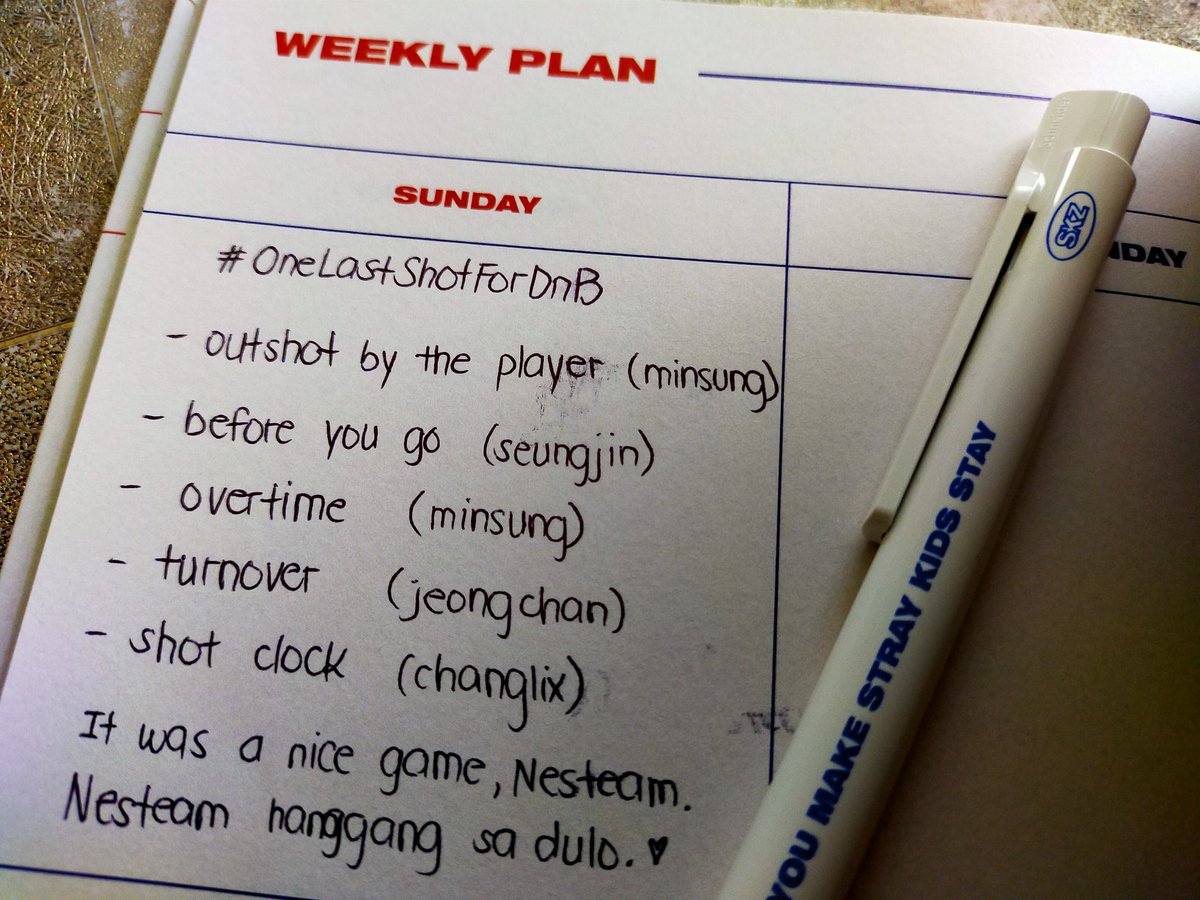 WEEKLY PLAN
SUNDAY
#OneLastShotForDnB
- outshot by the player (minsung)
- before you go (seungjin)
- overtime (minsung)
- turnover (jeongchan)
- shot clock (changlix)
It was a nice game, Nesteam.
Nesteam hanggang sa dulo. ♥
NDAY
Schneider
SKZ
YOU MAKE STRAY KIDS STAY